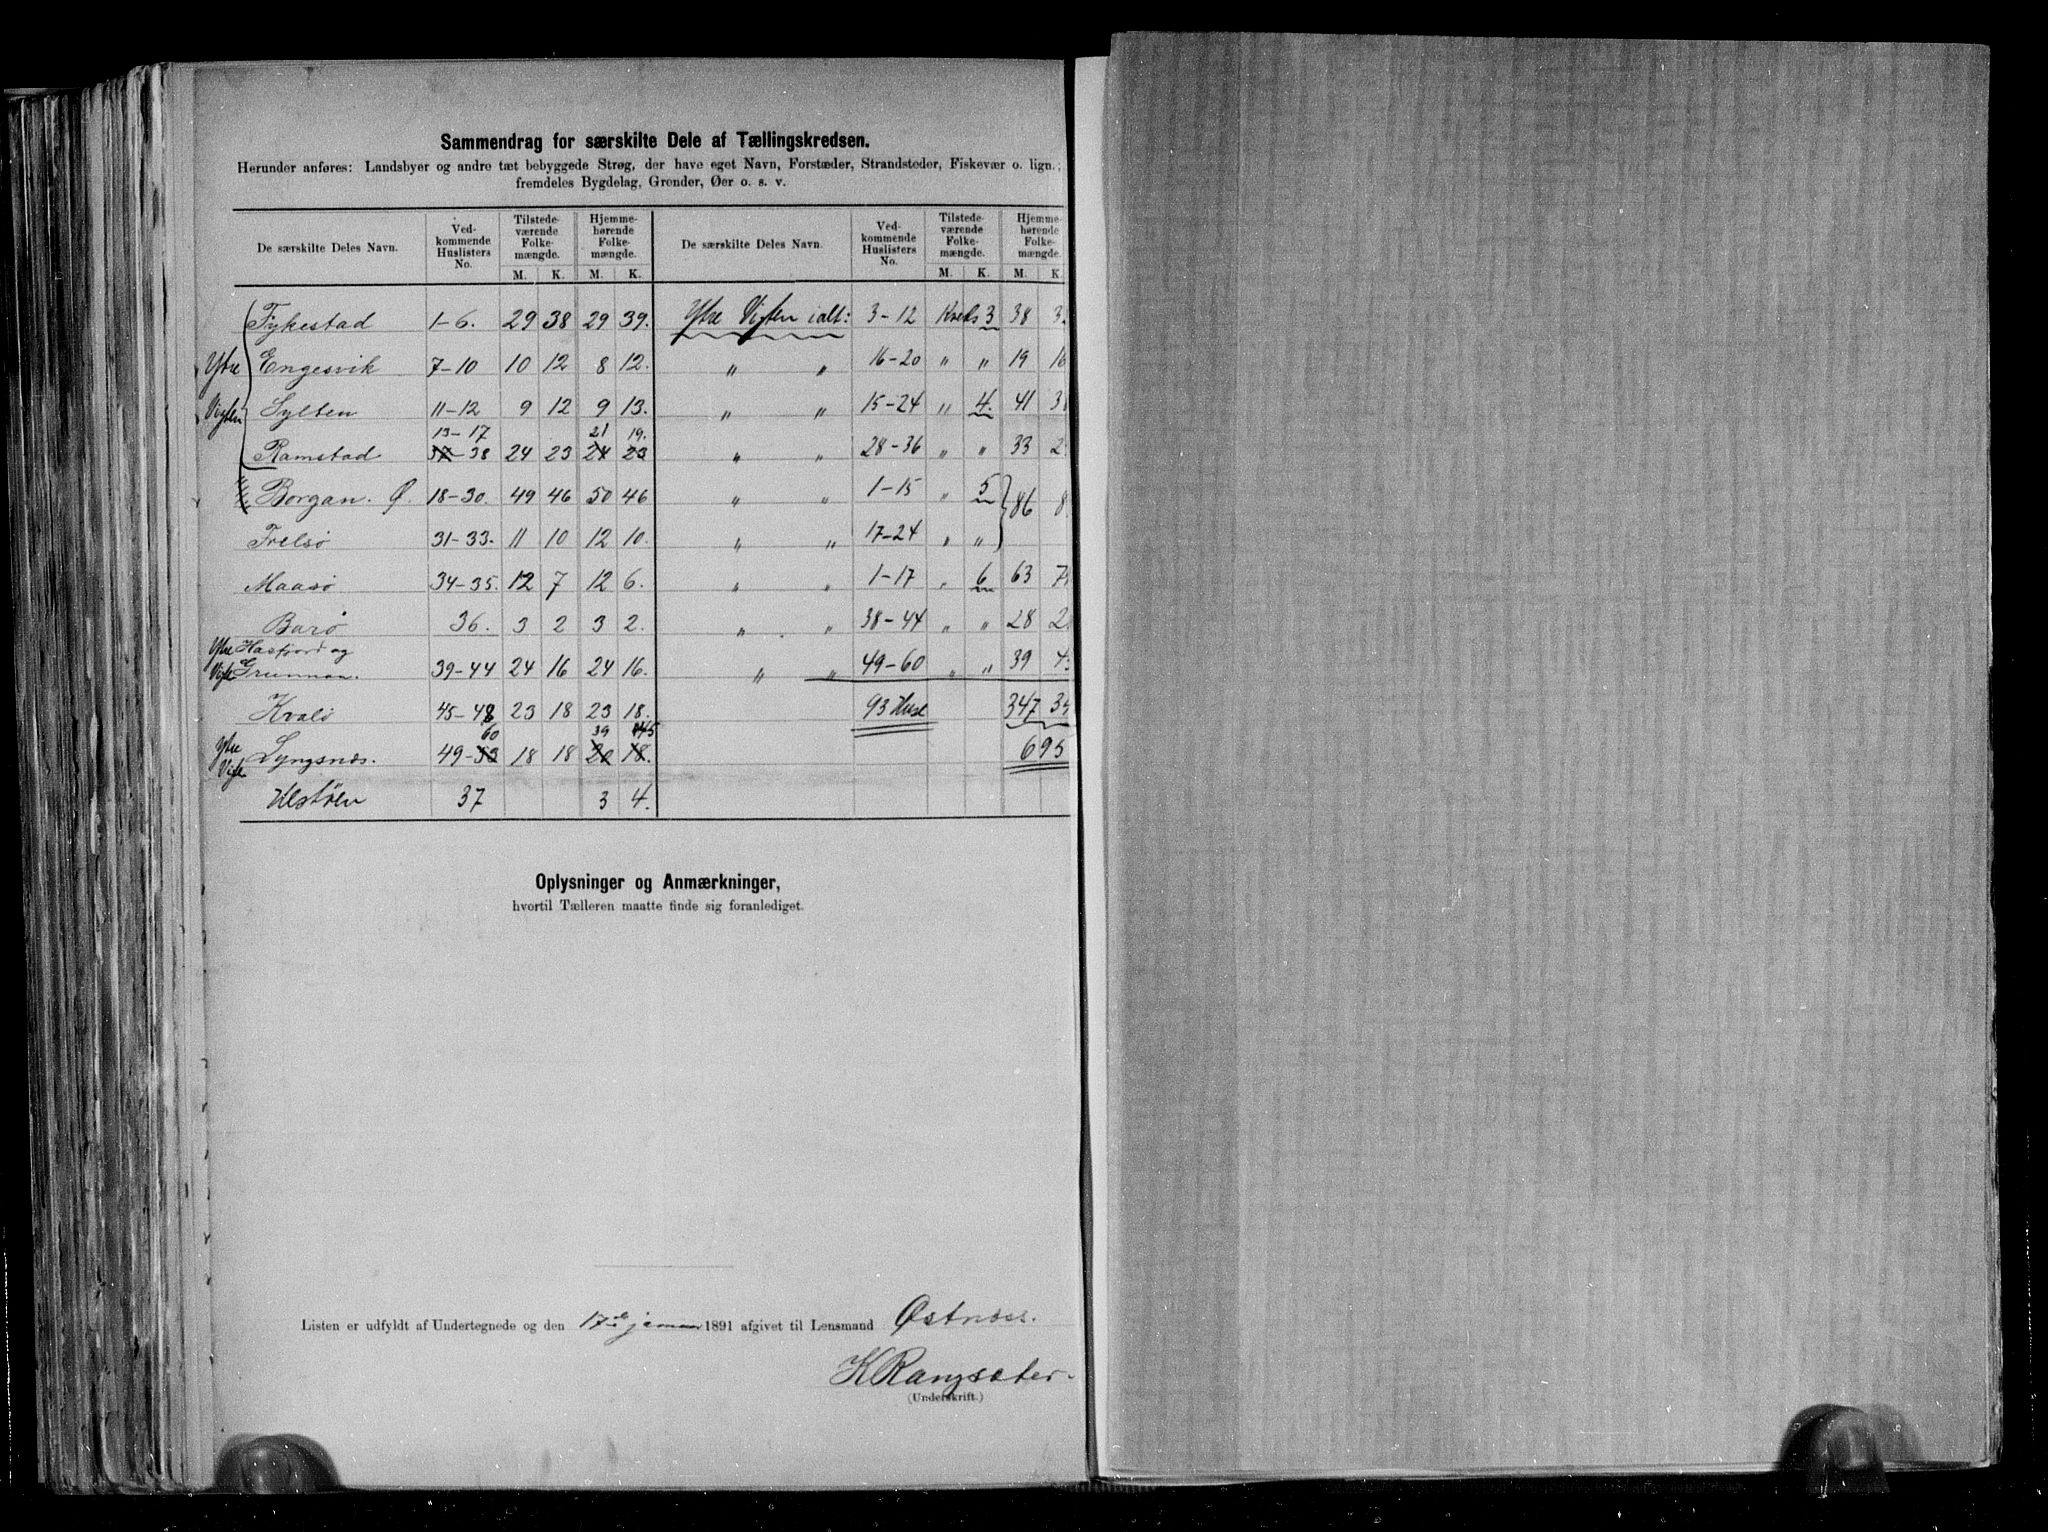 Sammendrag for særskilte Dele af Tællingskredsen.
Herunder anføres: Landsbyer og andre tæt bebyggede Strøg, der have eget Navn, Forstæder, Strandsteder, Fiskevær o. lign.;
fremdeles Bygdelag, Grender, Øer o. s. v.
De særskilte Deles Navn. Vedkommende Huslisters No. Tilstedeværende Folkemængde. M. K. Hjemmehørende Folkemængde. M. K.
De særskilte Deles Navn. Vedkommende Huslisters No. Tilstedeværende Folkemængde. M. K. Hjemmehørende Folkemængde. M. K.
Fykestad 1-6. 29 38 29 39. Ytre Vigten ialt: 3-12 Kreds 3 38
Ytre Engesvik 7-10 10 12 8 12. " " 16-20 " " 19 16
Vigten Sylten 11-12 9 12 9 13. " " 15-24 " 4. 41
13-17 21 19.
Ramstad 37 38 24 23 24 23 " " 28-36 " " 33
Borgan. Ø. 18-30. 49 46 50 46 " " 1-15 " 5 86
Frelsø 31-33. 11 10 12 10. " " 17-24 " "
Maasø 34-35. 12 7 12 6. " " 1-17 " 6 63
Barø 36. 3 2 3 2. " " 38-44 " " 28
Ytre Hasfjord og
Vigt Grunnan. 39-44 24 16 24 16. " " 49-60 " " 39
Kvalø 45-48 23 18 23 18. 93 Huse 347
60 39 45
Ytre Vigten Lyngsnæs. 49-53 18 18 20 18. 695
37 3 4.
Oplysninger og Anmærkninger,
hvortil Tælleren maatte finde sig foranlediget.
Listen er udfyldt af Undertegnede og den 17de januar 1891 afgivet til Lensmand Østnæss.
K Rangsæter
(Underskrift.)